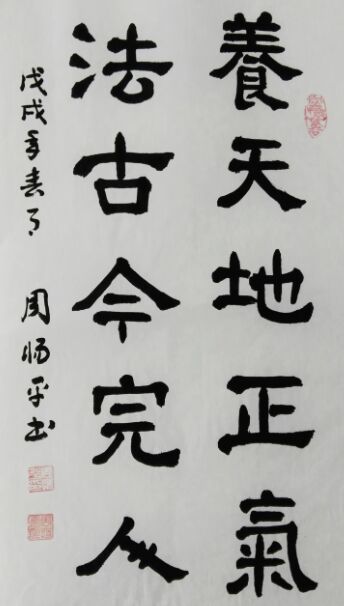 養天地正氣
法古今完人
戊戌年春月 周炳平书